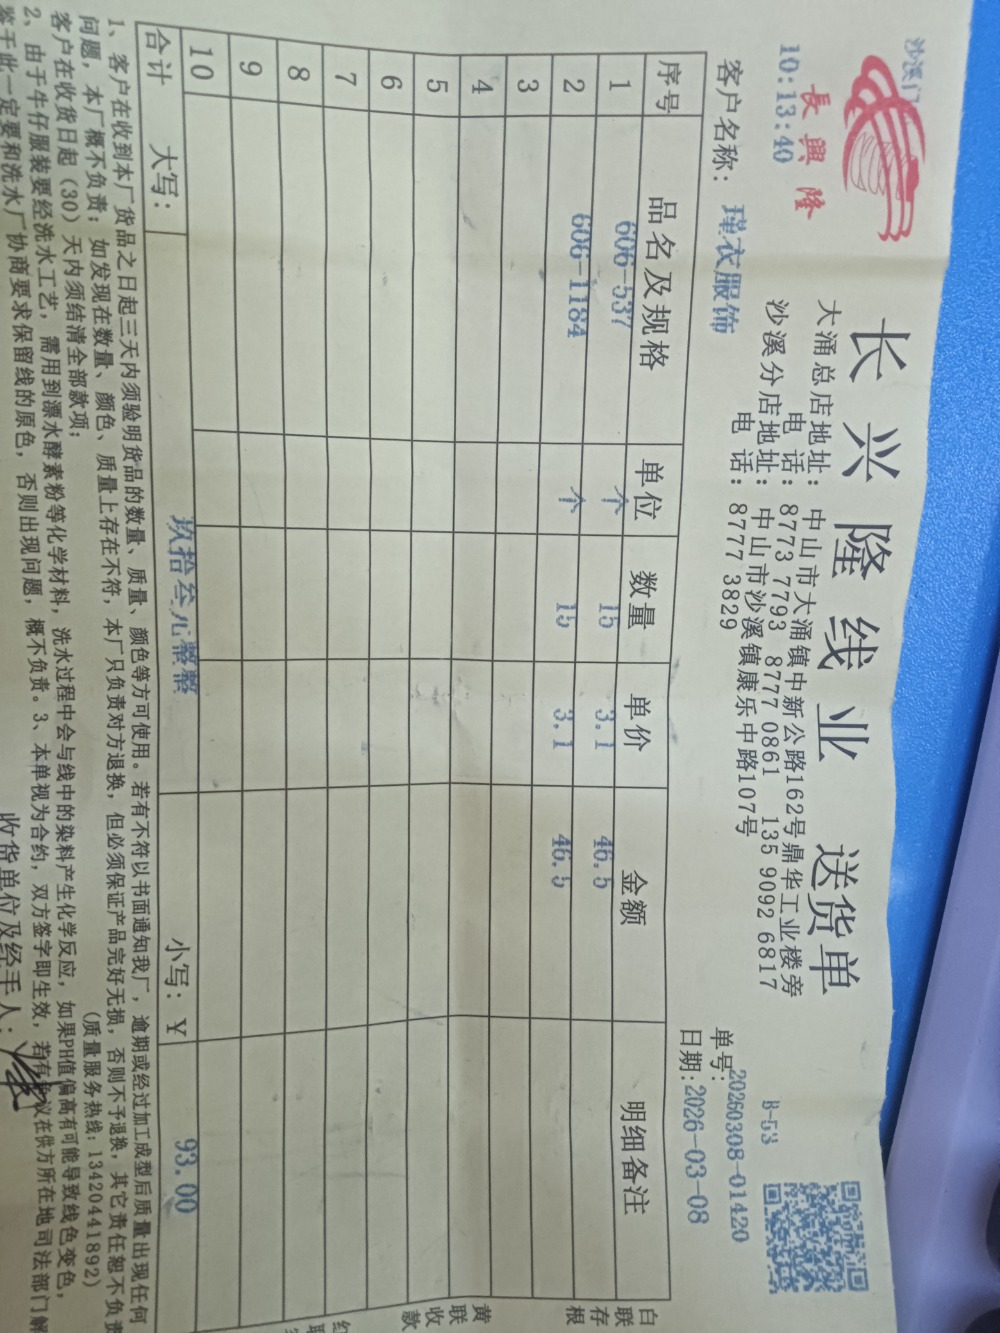 沙溪门
10:13:40
長興隆
长兴隆线业 送货单
大涌总店地址：中山市大涌镇中新公路162号鼎华工业楼旁
电话：8773 7793 8777 0861 135 9092 6817
沙溪分店地址：中山市沙溪镇康乐中路107号
电话：8777 3829
B-53
单号：20260308-01420
客户名称：瑾衣服饰
日期：2026-03-08
序号 品名及规格 单位 数量 单价 金额 明细备注
1 606-537 个 15 3.1 46.5
2 606-1184 个 15 3.1 46.5
3
4
5
6
7
8
9
10
合计 大写：玖拾叁元整整 小写：￥ 93.00
白联存根
黄联收款
1、客户在收到本厂货品之日起三天内须验明货品的数量、质量、颜色等方可使用。若有不符以书面通知我厂，逾期或经过加工成型后质量出现任何
问题，本厂概不负责；如发现在数量、颜色、质量上存在不符，本厂只负责对方退换，但必须保证产品完好无损，否则不予退换，其它责任恕不负责
客户在收货日起（30）天内须结清全部款项；
（质量服务热线：13420441892）
2、由于牛仔服装要经洗水工艺，需用到漂水酵素粉等化学材料，洗水过程中会与线中的染料产生化学反应，如果PH值偏高有可能导致线色变色，
鉴于此一定要和洗水厂协商要求保留线的原色，否则出现问题，概不负责。3、本单视为合约，双方签字即生效，若有 议在供方所在地司法部门解
收货单位及经手人：